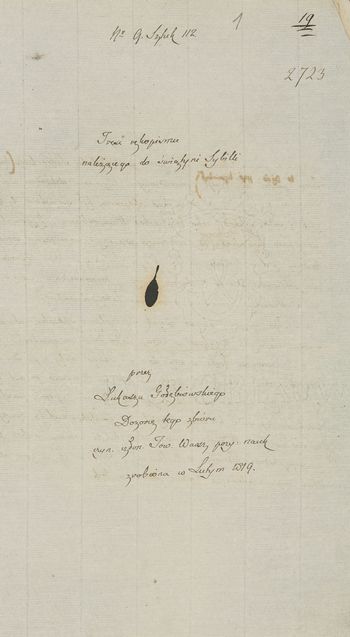 No 9. Sztuk 112
1
19
2723
Treść rękopismu
należącego do świątyni Sybilli
przez
Łukasza Gołębiowskiego
Dozorcę tego zbioru
czyn. człon. Tow. Warsz. przy. nauk
zrobiona w Lutym 1819.